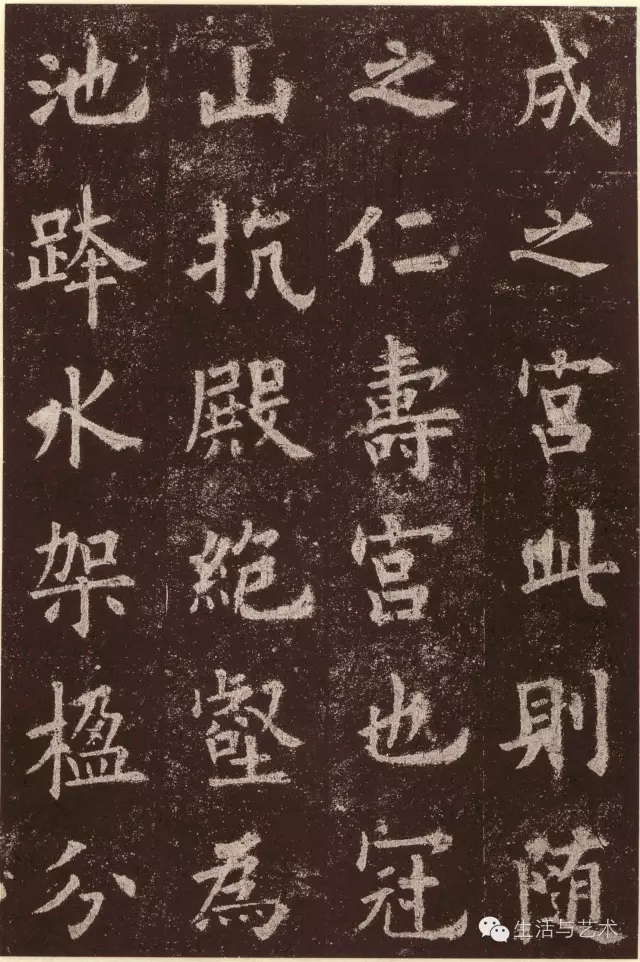 成之宮此則随
之仁壽宮也冠
山抗殿絶壑為
池跨水架楹分
生活与艺术